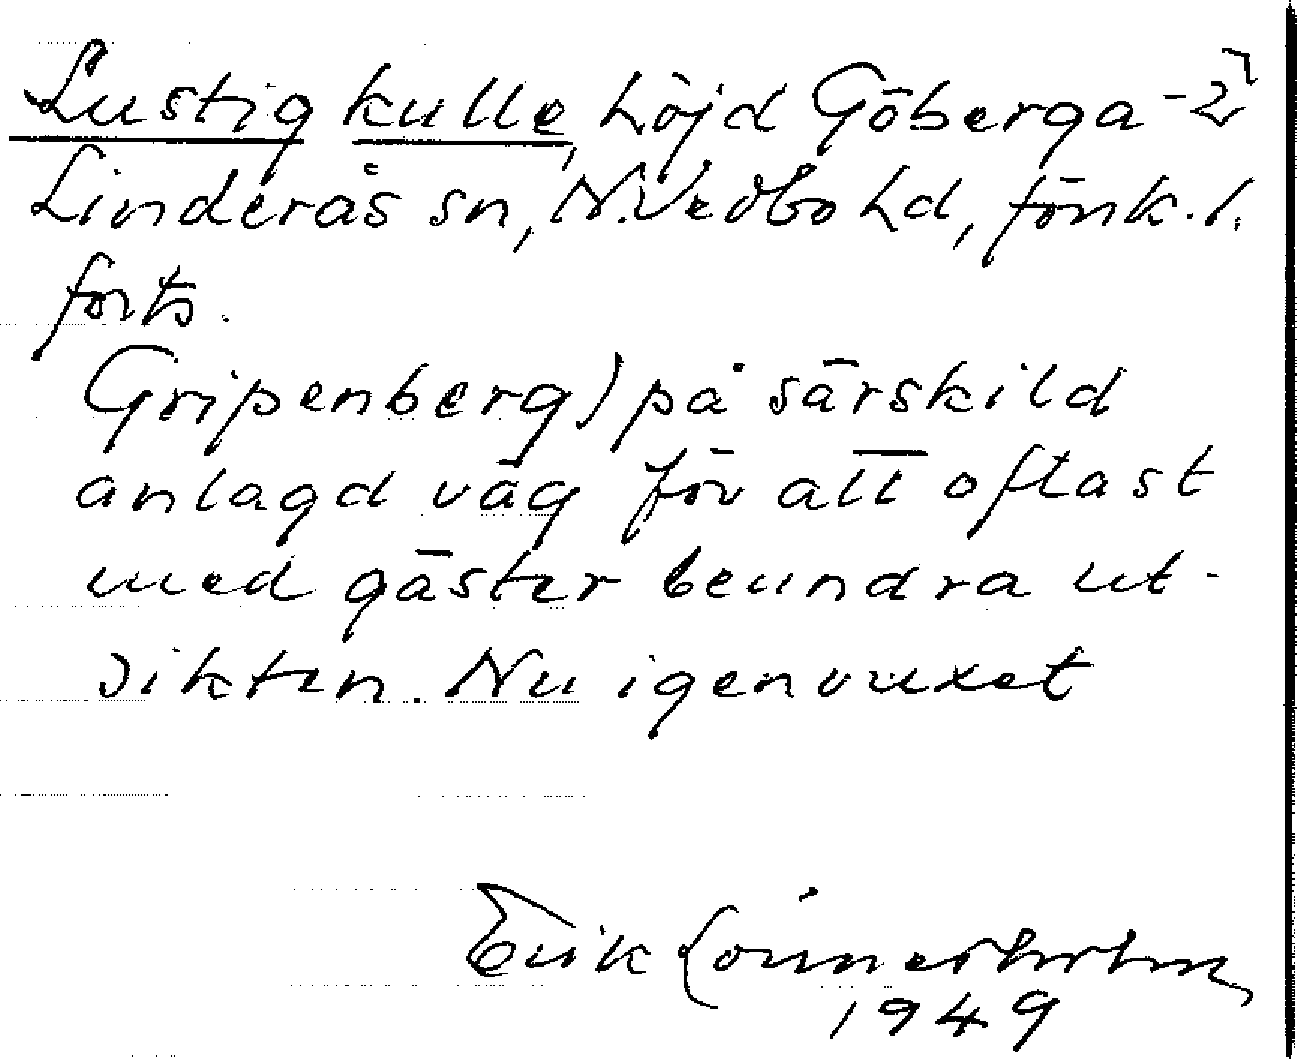 Lustig kulle, höjd Göberga -2
Linderås sn, N. Vedbo hd, Jönk. l.
forts.
Gripenberg) på särskild
anlagd väg för att oftast
med gäster beundra ut-
sikten. Nu igenvuxet
Erik Lönnerholm
1949